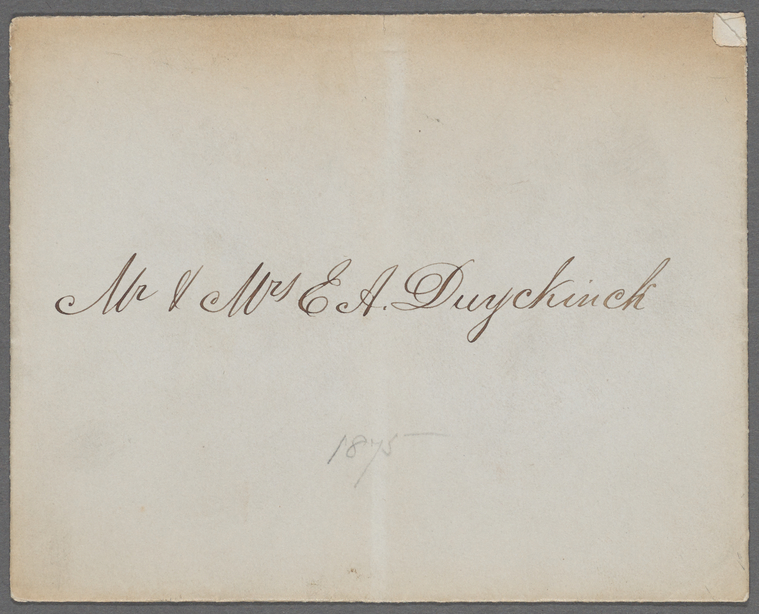 Mr & Mrs E A. Duyckinck
1875